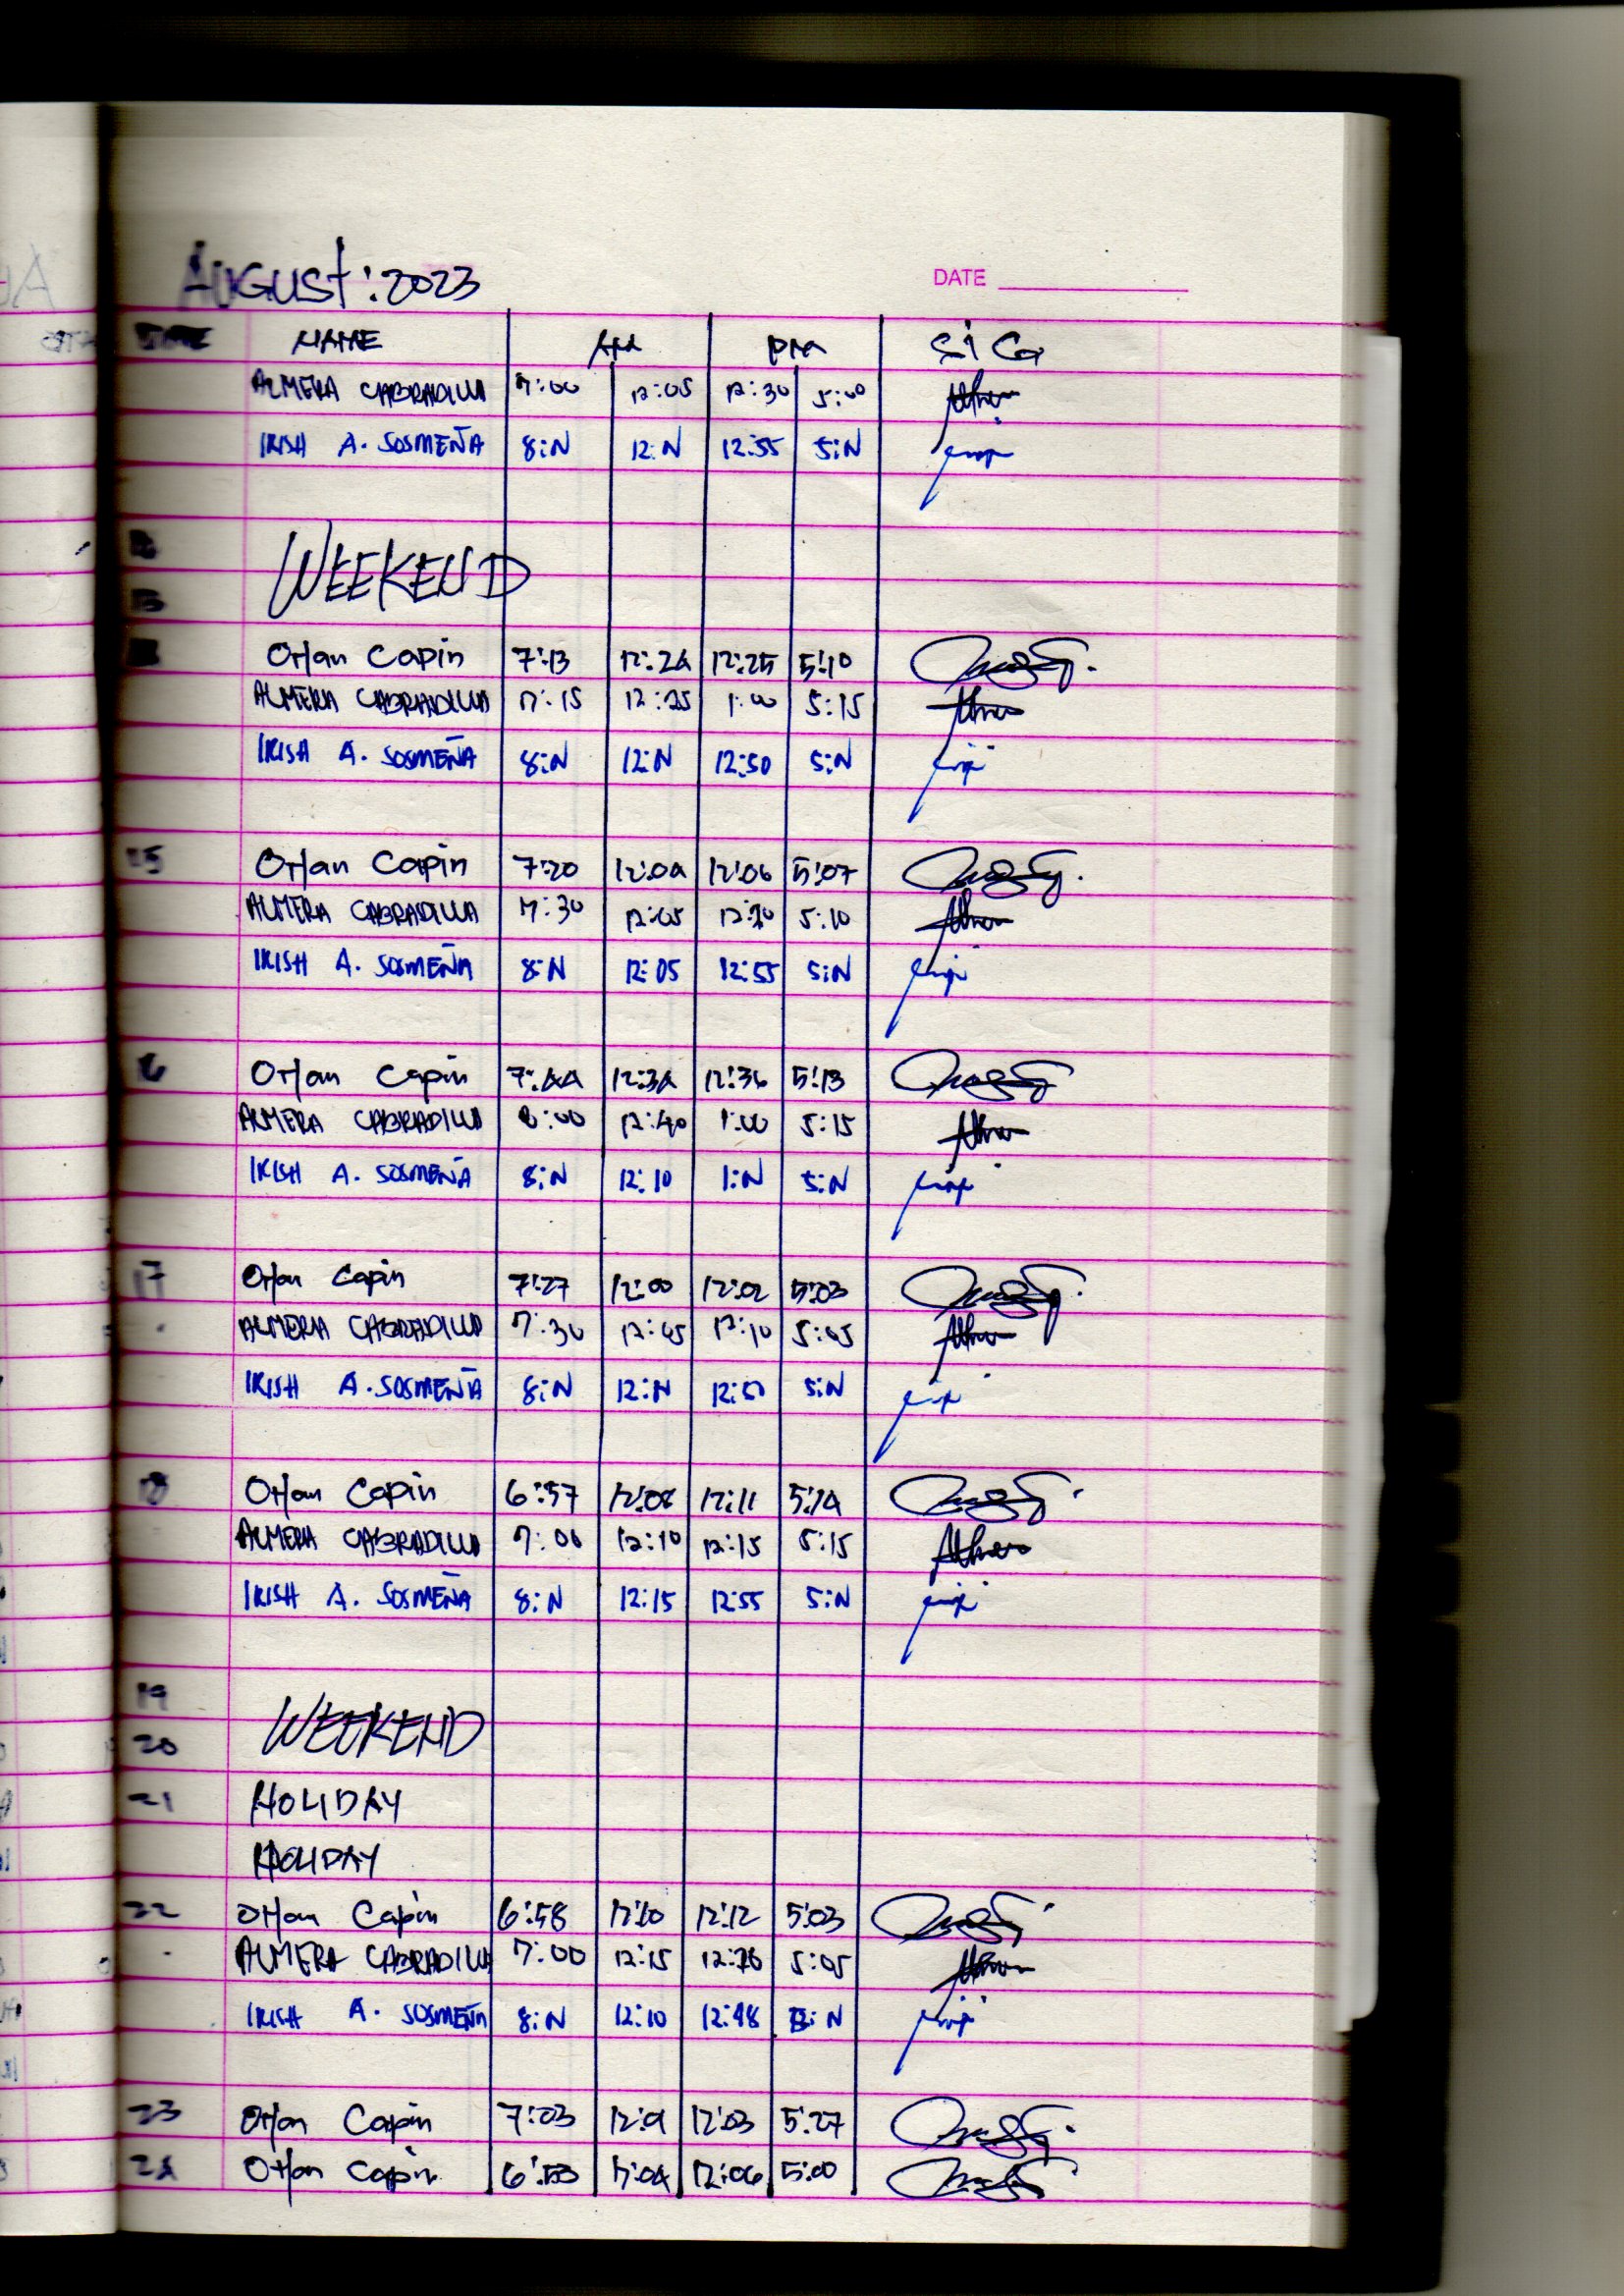 AUGUST: 2023
DATE
NAME AM PM SIG
ALMERA CABRADILLA 7:00 12:05 12:30 5:00
IRISH A. SOSMEÑA 8:N 12:N 12:55 5:N
WEEKEND
13
Orlan Capin 7:13 12:24 12:25 5:10
ALMERA CABRADILLA 7:15 12:25 1:00 5:15
IRISH A. SOSMEÑA 8:N 12:N 12:50 5:N
15 Orlan Capin 7:20 12:04 12:06 5:07
ALMERA CABRADILLA 7:30 12:05 5:10
IRISH A. SOSMEÑA 8:N 12:05 12:55 5:N
16 Orlan Capin 7:44 12:34 12:36 5:13
ALMERA CABRADILLA 8:00 12:40 1:00 5:15
IRISH A. SOSMEÑA 8:N 12:10 1:N 5:N
17 Orlan Capin 7:27 12:00 12:02 5:03
ALMERA CABRADILLA 7:30 12:05 12:10 5:05
IRISH A. SOSMEÑA 8:N 12:N 12:50 5:N
18 Orlan Capin 6:57 12:08 12:11 5:14
ALMERA CABRADILLA 7:00 12:10 12:15 5:15
IRISH A. SOSMEÑA 8:N 12:15 12:55 5:N
19
WEEKEND
20
21 HOLIDAY
HOLIDAY
22 Orlan Capin 6:58 12:10 12:12 5:03
ALMERA CABRADILLA 7:00 12:15 5:05
IRISH A. SOSMEÑA 8:N 12:10 12:48 5:N
23 Orlan Capin 7:03 12:01 12:03 5:27
24 Orlan Capin 6:53 12:04 12:06 5:00